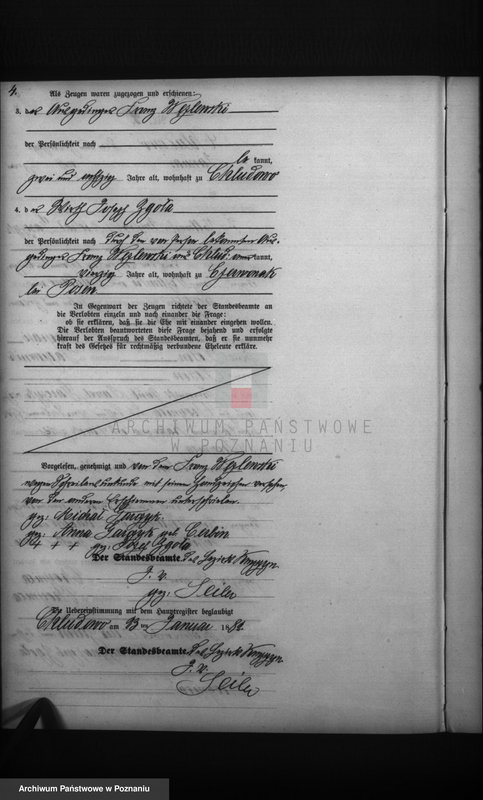 4.
Als Zeugen waren zugezogen und erschienen:
3. der Ausgedinger Franz Weglewski
der Persönlichkeit nach
be kannt,
zwei und achtzig Jahre alt, wohnhaft zu Chludowo
4. der Wirth Joseph Zgola
der Persönlichkeit nach durch den von Person bekannten Aus-
gedinger Franz Weglewski aus Chlud. kannt,
vierzig Jahre alt, wohnhaft zu Czerwonak
bei Posen
In Gegenwart der Zeugen richtete der Standesbeamte an
die Verlobten einzeln und nach einander die Frage:
ob sie erklären, daß sie die Ehe mit einander eingehen wollen.
Die Verlobten beantworteten diese Frage bejahend und erfolgte
hierauf der Ausspruch des Standesbeamten, daß er sie nunmehr
kraft des Gesetzes für rechtmäßig verbundene Eheleute erkläre.
ARCHIWUM PAŃSTWOWE
W POZNANIU
Vorgelesen, genehmigt und von dem Franz Weglewski
wegen Schreibensunkunde mit seinem Handzeichen versehen,
von den anderen Erschienenen unterschrieben.
gez. Michał
gez. Anna geb.
+ + + gez. Józef Zgoła
Der Standesbeamte. des Bezirks
J. V.
gez. Seiler
Die Uebereinstimmung mit dem Hauptregister beglaubigt
Chludowo am 13 ten Januar 18
Der Standesbeamte. des Bezirks
J. V.
Seiler
Archiwum Państwowe w Poznaniu